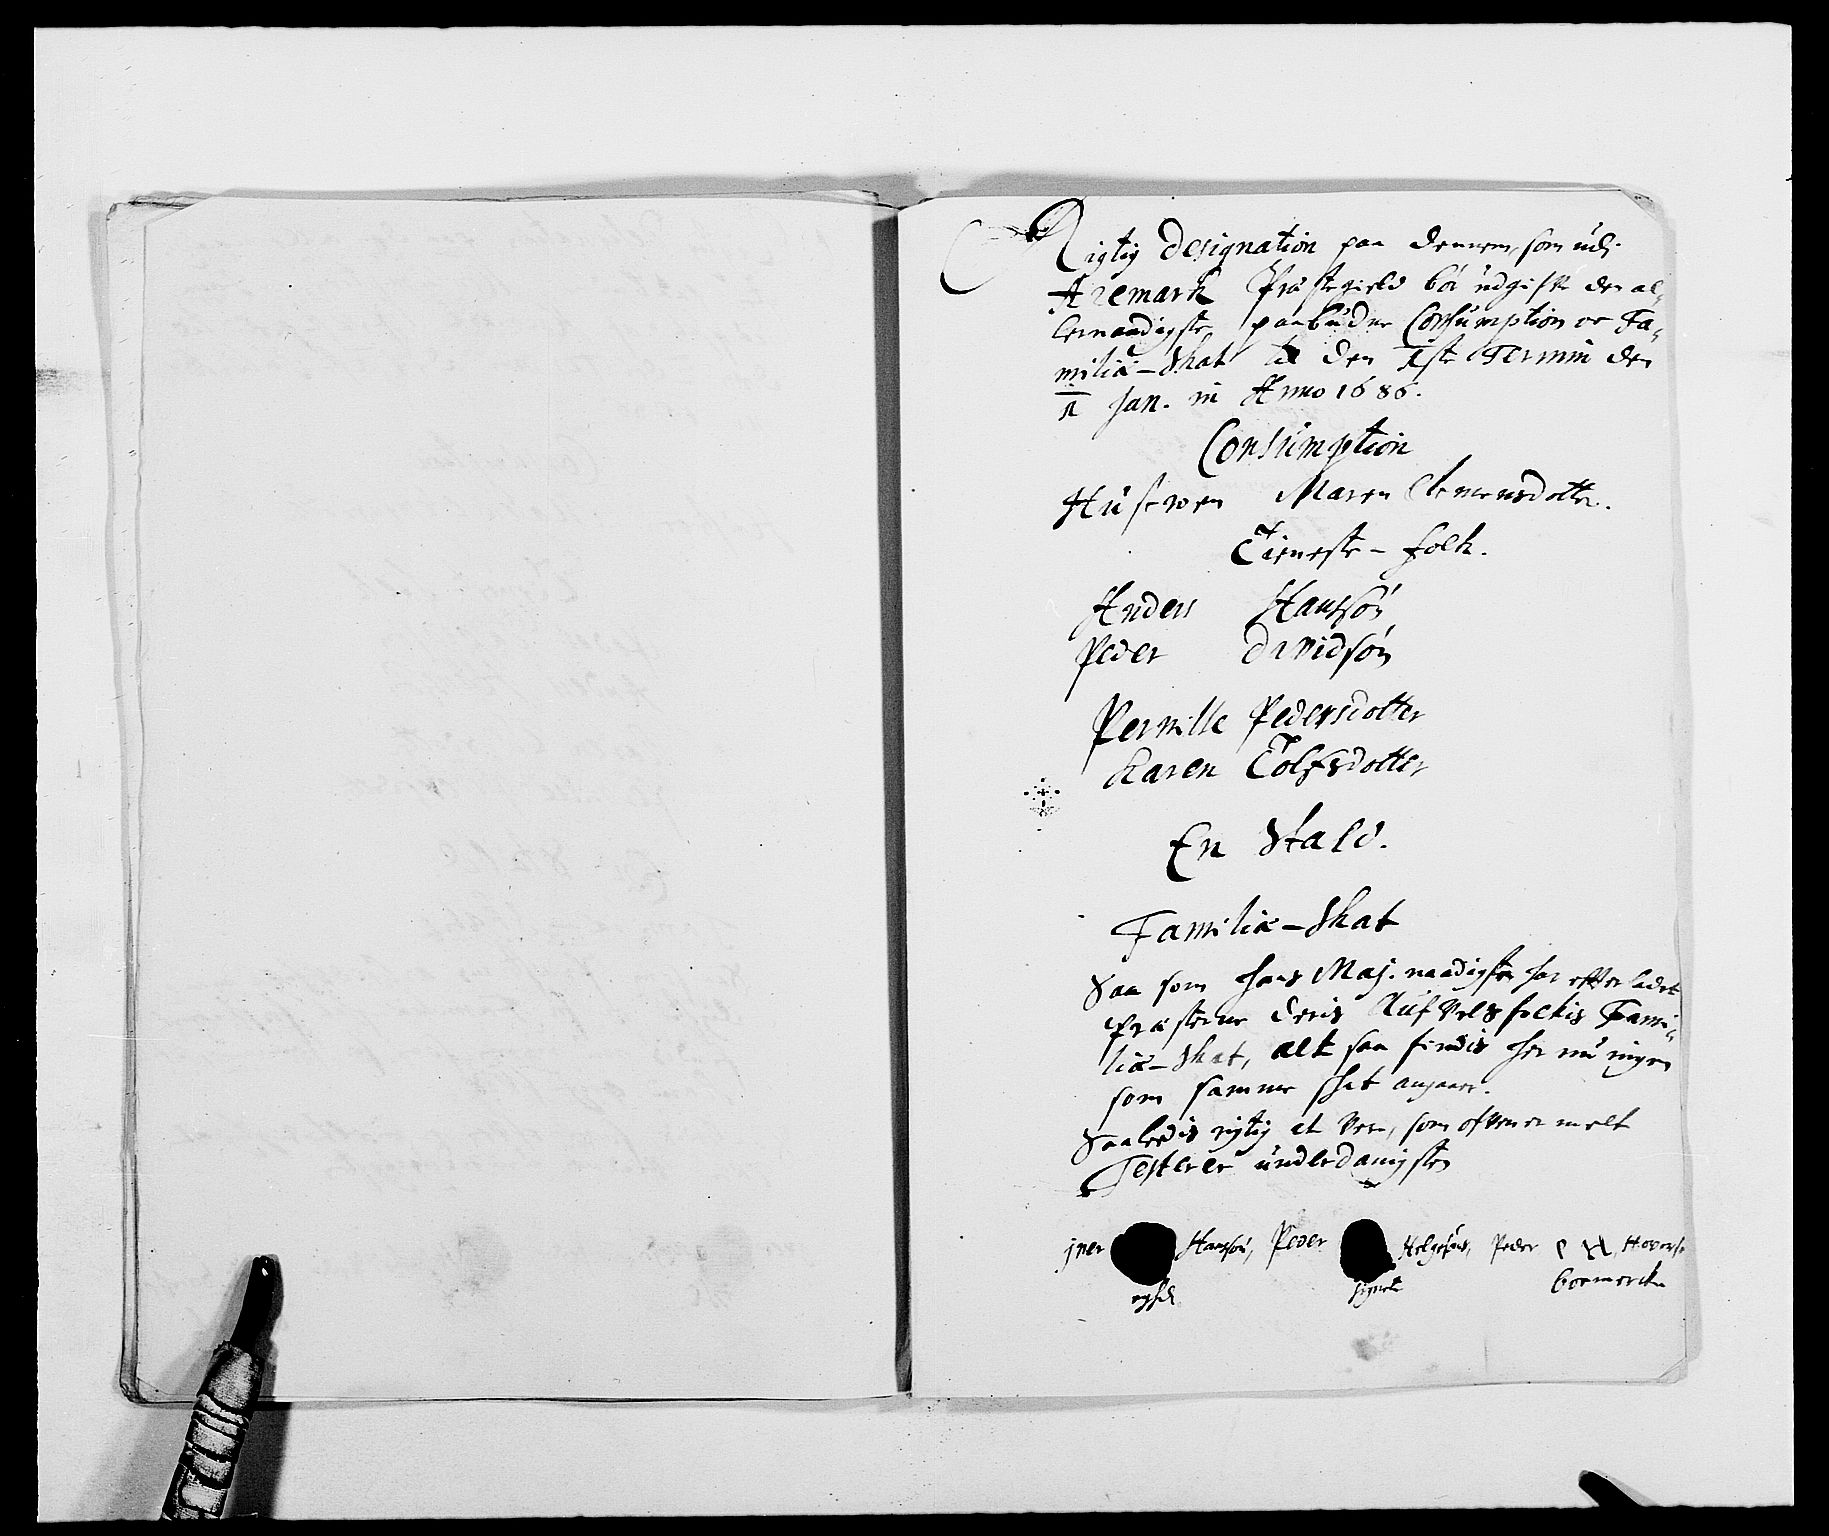 Rigtig Designation paa dennem, som udi
Aremark Præstegield bør udgifve den al-
lernaadigste paabudne Consumption oc Fa-
miliæ-Skat til den 1ste Termin den
1 Jan. in Anno 1686.
Consumption
Hustroen Maren Clemensdotter.
Tieneste-folk.
Anders Hansøn
Peder Davidsøn
Pernille Pedersdotter
Karen Tolfsdotter
En Stald.
Familiæ-Skat
Saa som hans Maj. naadigste har efterladet
Præsterne deris Familiæ-
liæ-Skat, alt saa findis her nu ingen
som samme skat angaaer.
Saaledis rigtig at være, som ofven er melt
Testerer underdanigsten
Iver Hansøn, Peder Helgesøns, Peder P H, Hoversø
signete